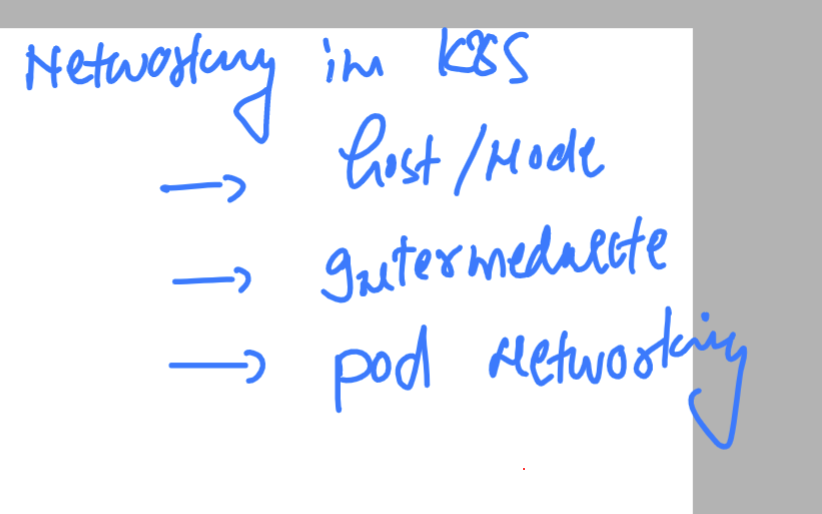 Networking in K8S
→ host/Node
→ Intermediate
→ pod Networking